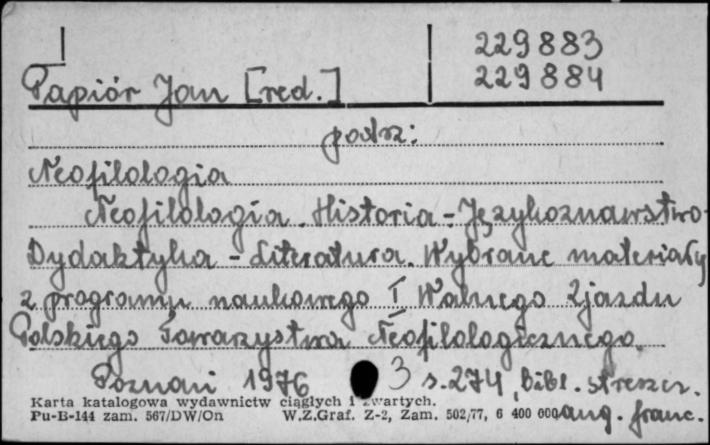 229883
Papiór Jan [red.] 229884
podrz:
Neofilologia
Neofilologia. Historia - Językoznawstwo-
Dydaktyka - Literatura. Wybrane materiały
z programu naukowego I Walnego Zjazdu
Polskiego Towarzystwa Neofilologicznego.
Poznań 1976 3 s. 274, bibl. streszcz.
ang. franc.
Karta katalogowa wydawnictw ciągłych i zwartych.
Pu-B-144 zam. 567/DW/On W.Z.Graf. Z-2, Zam. 502/77, 6 400 000